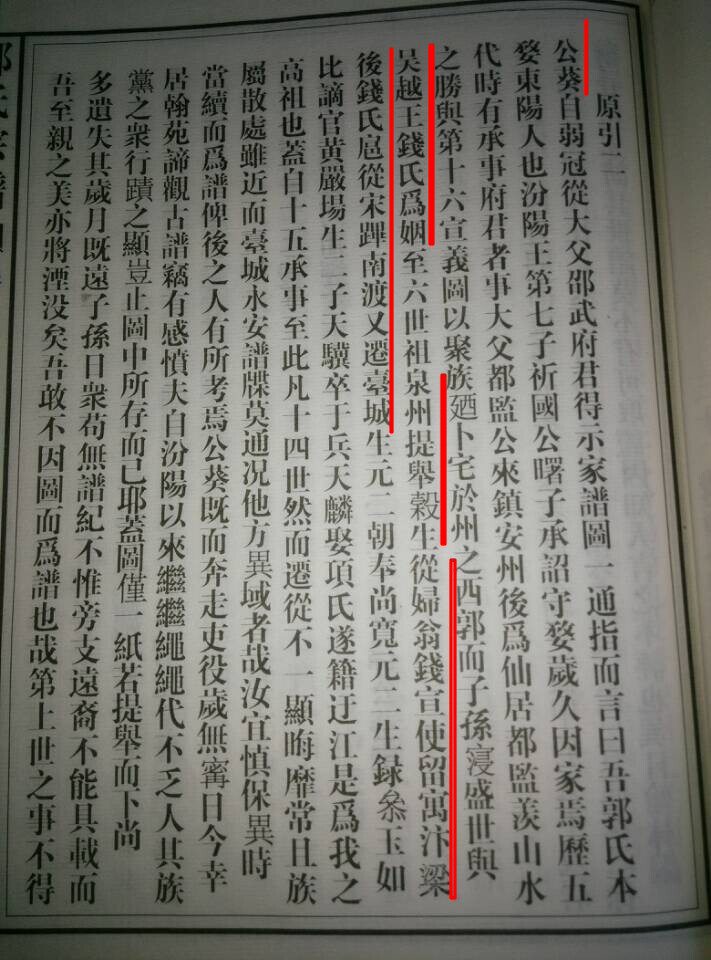 原引二
公葵自弱冠從大父邵武府君得示家譜圖一通指而言曰吾郭氏本
婺東陽人也汾陽王第七子祈國公曙子承詔守婺歲久因家焉歷五
代時有承事府君者事大父都監公來鎮安州後爲仙居都監羨山水
之勝與第十六宣義圖以聚族廼卜宅於州之西郭而子孫寖盛世與
吴越王錢氏爲姻至六世祖泉州提舉榖生從婦翁錢宣使留寓汴梁
後錢氏扈從宋蹕南渡又遷臺城生元二朝奉尚寬元二生録叅玉如
比謫官黃嚴場生二子天驥卒于兵天麟娶項氏遂籍迂江是爲我之
高祖也蓋自十五承事至此凡十四世然而遷從不一顯晦靡常且族
屬散處雖近而臺城永安譜牒莫通况他方異域者哉汝宜慎保異時
當續而爲譜俾後之人有所考焉公葵既而奔走吏役歲無寗日今幸
居翰苑諦觀古譜竊有感憤夫自汾陽以來繼繼繩繩代不乏人其族
黨之衆行蹟之顯豈止圖中所存而已耶蓋圖僅一紙若提舉而下尚
多遺失其歲月既遠子孫日衆苟無譜紀不惟旁支遠裔不能具載而
吾至親之美亦將湮没矣吾敢不因圖而爲譜也哉第上世之事不得